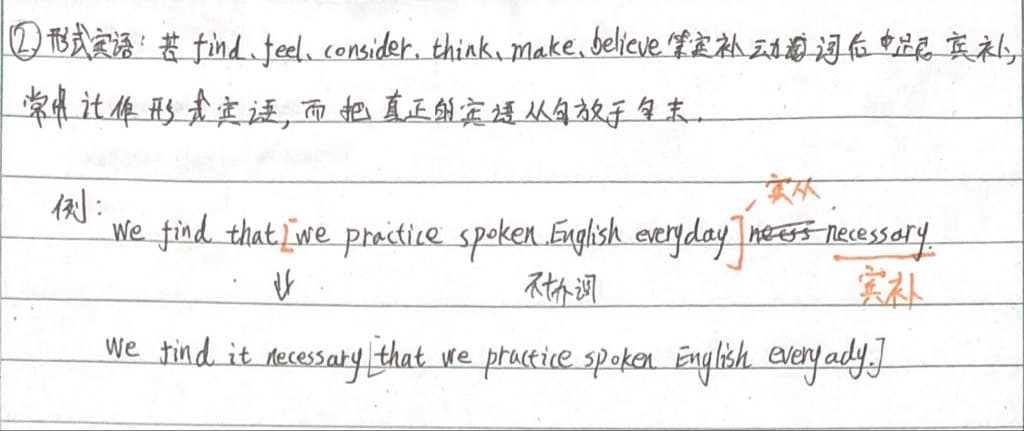 ②形式宾语：若 find、feel、consider、think、make、believe 等宾补动词后跟宾补，
常用it作形式宾语，而把真正的宾语从句放于句末．
宾从
例：
We find that [we practice spoken English everyday] necessary.
↓ 宾补
We find it necessary [that we practice spoken English everyady.]